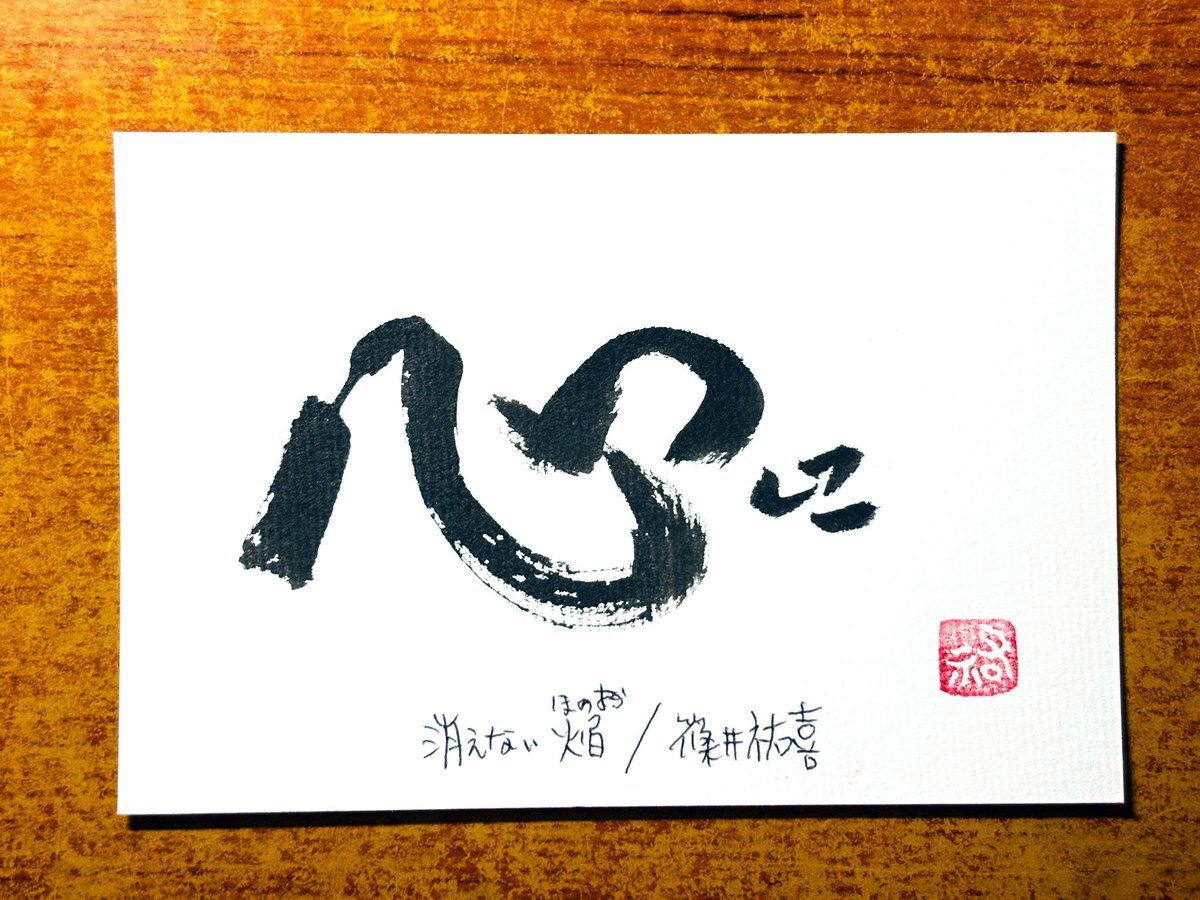 心に
ほのお
消えない焔/篠井祐喜
祐